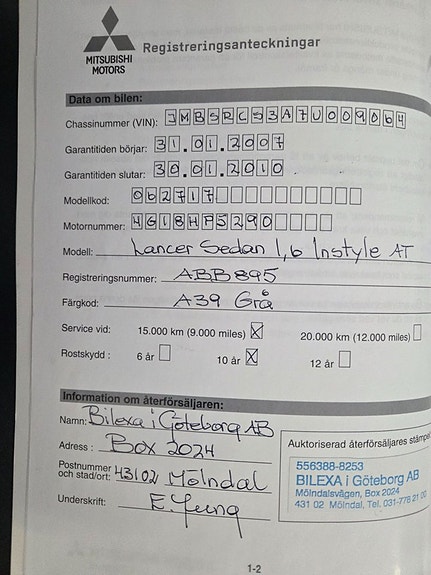 MITSUBISHI
MOTORS
Registreringsanteckningar
Data om bilen:
Chassinummer (VIN): JMBSRCS3A7U009064
Garantitiden börjar: 31.01.2007
Garantitiden slutar: 30.01.2010
Modellkod: 062717
Motornummer: 4G18HP5290
Modell: Lancer Sedan 1,6 Instyle AT
Registreringsnummer: ABB895
Färgkod: A39 Grå
Service vid: 15.000 km (9.000 miles) ☒ 20.000 km (12.000 miles) ☐
Rostskydd: 6 år ☐ 10 år ☒ 12 år ☐
Information om återförsäljaren:
Namn: Bilexa i Göteborg AB
Adress: Box 2024
Postnummer
och stad/ort: 43102 Mölndal
Underskrift:
Auktoriserad återförsäljares stämpel
556388-8253
BILEXA i Göteborg AB
Mölndalsvägen, Box 2024
431 02 Mölndal, Tel. 031-778 21 00
1-2